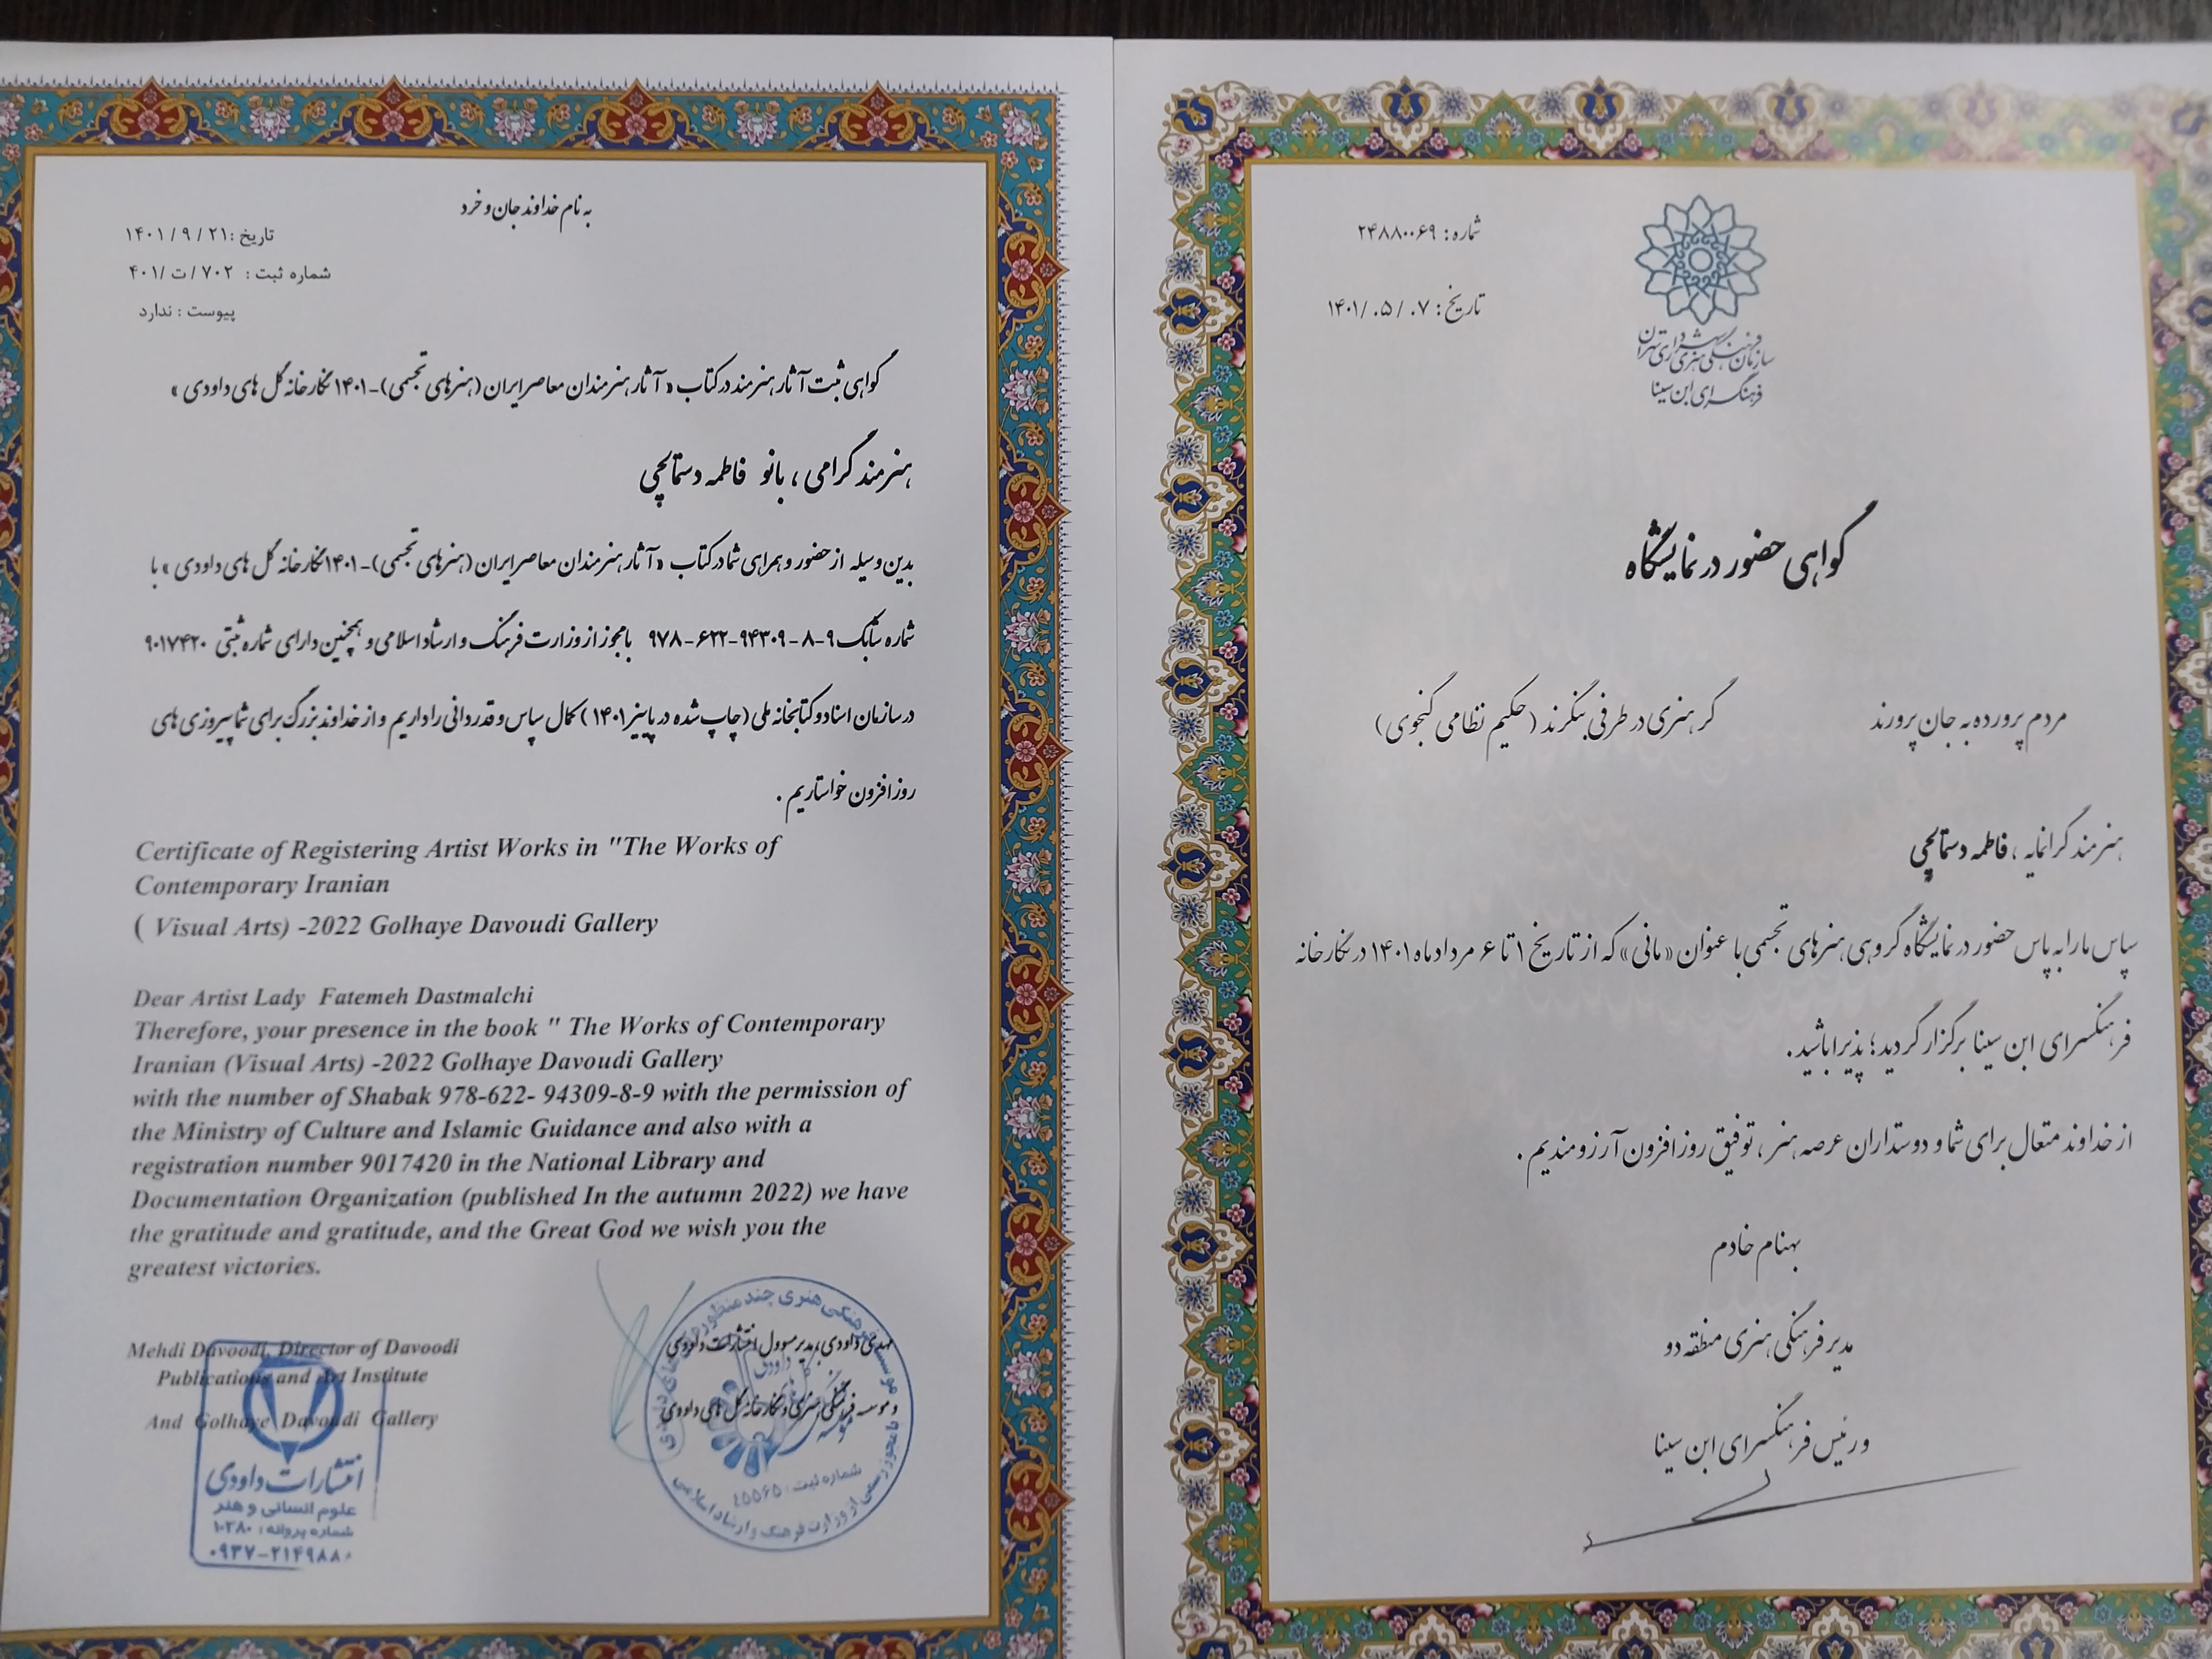 به نام خداوند جان و خرد
تاریخ :۱۴۰۱/۹/۲۱
شماره ثبت : ۷۰۲/ت/۴۰۱
پیوست : ندارد
گواهی ثبت آثار هنرمند در کتاب « آثار هنرمندان معاصر ایران (هنرهای تجسمی)-۱۴۰۱ نگارخانه گل های داودی »
هنرمند گرامی ، بانو فاطمه دستمالچی
بدین وسیله از حضور و همراهی شما در کتاب « آثار هنرمندان معاصر ایران (هنرهای تجسمی)-۱۴۰۱ نگارخانه گل های داودی » با
شماره شابک ۹-۸-۹۴۳۰۹-۶۲۲-۹۷۸ با مجوز از وزارت فرهنگ و ارشاد اسلامی و همچنین دارای شماره ثبتی ۹۰۱۷۴۲۰
در سازمان اسناد و کتابخانه ملی (چاپ شده در پاییز ۱۴۰۱) کمال سپاس و قدردانی را داریم و از خداوند بزرگ برای شما پیروزی های
روز افزون خواستاریم .
Certificate of Registering Artist Works in "The Works of
Contemporary Iranian
( Visual Arts) -2022 Golhaye Davoudi Gallery
Dear Artist Lady Fatemeh Dastmalchi
Therefore, your presence in the book " The Works of Contemporary
Iranian (Visual Arts) -2022 Golhaye Davoudi Gallery
with the number of Shabak 978-622- 94309-8-9 with the permission of
the Ministry of Culture and Islamic Guidance and also with a
registration number 9017420 in the National Library and
Documentation Organization (published In the autumn 2022) we have
the gratitude and gratitude, and the Great God we wish you the
greatest victories.
Mehdi Davoodi, Director of Davoodi
Publications and Art Institute
And Golhaye Davoudi Gallery
انتشارات داودی
علوم انسانی و هنر
شماره پروانه : ۱۰۳۸۰
مهدی داودی ، مدیر مسوول انتشارات داودی
و موسسه فرهنگی هنری و نگارخانه گل های داودی
موسسه فرهنگی هنری چند منظوره گل های داودی
شماره ثبت : ۴۵۵۶۵
با مجوز رسمی از وزارت فرهنگ و ارشاد اسلامی
سازمان فرهنگی هنری شهرداری تهران
فرهنگسرای ابن سینا
شماره : ۲۴۸۸۰۰۶۹
تاریخ : ۱۴۰۱/۰۵/۰۷
گواهی حضور در نمایشگاه
مردم پرورده به جان پرورند گر هنری در طرفی بنگرند (حکیم نظامی گنجوی)
هنرمند گرانمایه ، فاطمه دستمالچی
سپاس ما را به پاس حضور در نمایشگاه گروهی هنرهای تجسمی با عنوان «مانی» که از تاریخ ۱ تا ۶ مرداد ماه ۱۴۰۱ در نگارخانه
فرهنگسرای ابن سینا برگزار گردید؛ پذیرا باشید.
از خداوند متعال برای شما و دوستداران عرصه هنر ، توفیق روزافزون آرزومندیم .
بهنام خادم
مدیر فرهنگی هنری منطقه دو
و رئیس فرهنگسرای ابن سینا